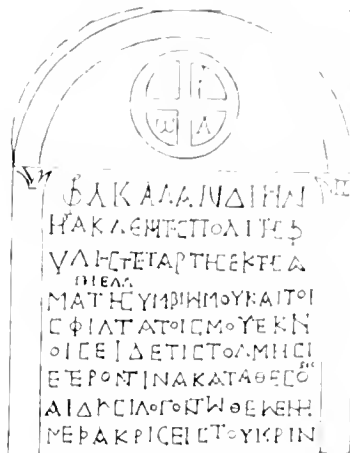 ΚΑΛΑΝΔΙΩΝ
ΗΡΑΚΛΕΩΤΗϹΠΟΛΙΤΗϹΦ
ΥΛΗϹΤΕΤΑΡΤΗϹΕΚΤΗϹΑ
ΠΙΕΛΛ
ΜΑΤΗϹΥΜΒΙΩΜΟΥΚΑΙΤΟΙ
ϹΦΙΛΤΑΤΟΙϹΜΟΥΕΚΝ
ΟΙϹΕΙΔΕΤΙϹΤΟΛΜΗϹΙ
ΕΤΕΡΟΝΤΙΝΑΚΑΤΑΘΕϹΟ sic
ΑΙΔΩϹΙΛΟΓΟΝΤΩΘΕΩΕΝΗ
ΜΕΡΑΚΡΙϹΕΙϹΤΟΥΚΡΙΝ